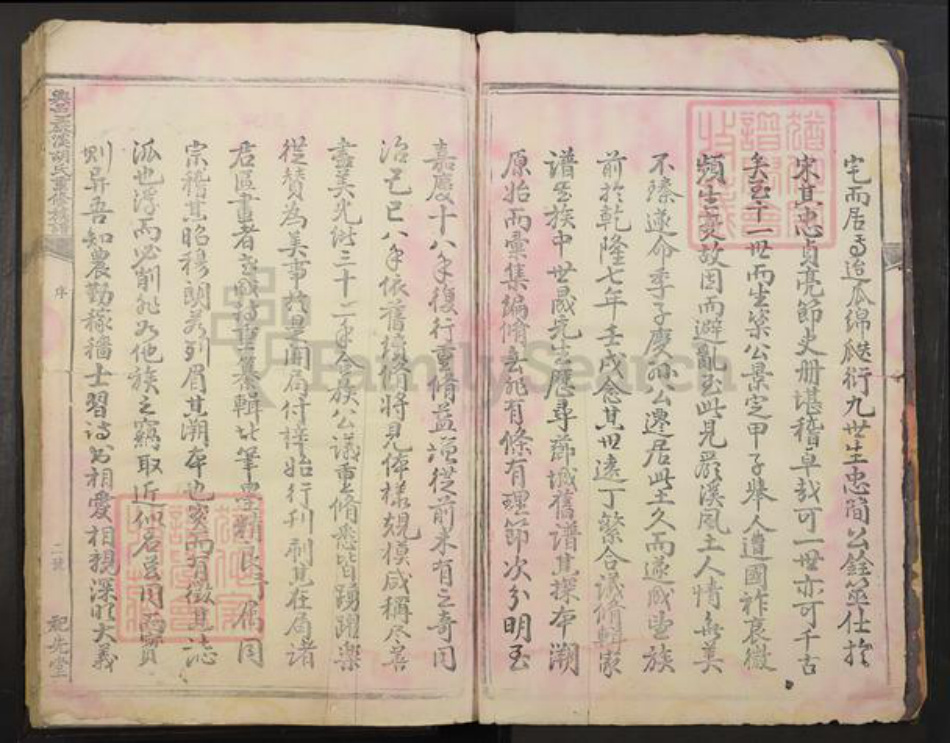 宅而居焉迨瓜綿瓞衍九世生忠簡公銓筮仕於
宋其忠貞亮節史册堪稽卓哉可一世亦可千古
矣至十一世而生築公景定甲子舉人遭國祚衰微
頻生變故因而避亂至此見嚴溪風土人情無美
不臻遂命季子慶 公遷居此土久而遂成望族
前於乾隆七年壬戌念其世遠丁繁合議脩輯家
譜 族中世晟先生歷尋薌城舊譜其探本溯
原始而彙集編脩無非有條有理節次分明至
嘉慶十八年復行重脩益詳從前未有之奇同
治己巳八年依舊續脩將見体樣規模咸稱尽善
盡美光緒三十二年合族公議重脩悉皆踴躍樂
從贊為美事於是開局付梓始行刊刷其在局諸
君區畫者 纂輯 筆墨 同
宗稽其昭穆朗若列眉其溯本也實而有徵其誌
派也浮而必削非如他族之竊取近似名 實
則異吾知農勤稼穡士習詩書相愛相親深明大義
胡氏重修族譜
序
二號
祀先堂
FamilySearch